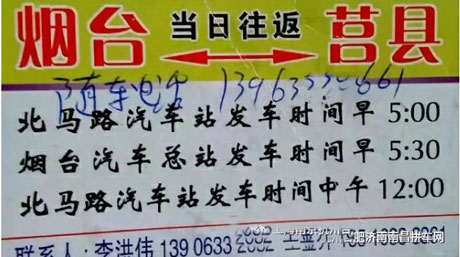 烟台 当日往返 莒县
随车电话
北马路汽车站发车时间早 5:00
烟台汽车总站发车时间早 5:30
北马路汽车站发车时间中午 12:00
联系人:李洪伟 139 0633
肥济南南昌拼车网